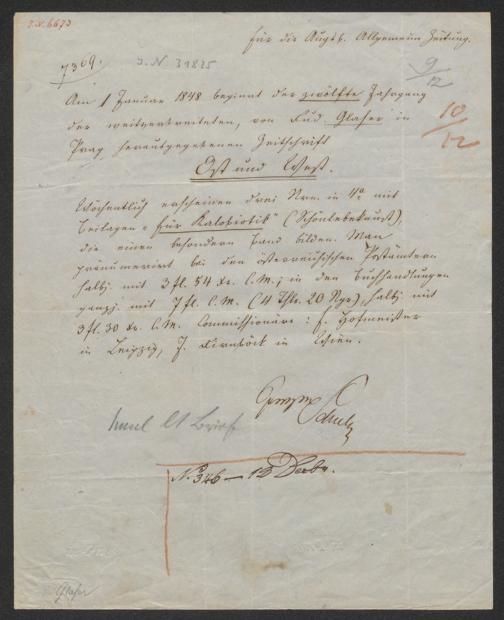 J.N. 6673
Für die Augsb. Allgemeine Zeitung.
7369.
J.N. 31825
9/12
Am 1 Januar 1848 beginnt der zwölfte Jahrgang
10/12
der weitverbreiteten, von Rud. Glaser in
Prag herausgegebenen Zeitschrift
Ost und West.
Wöchentlich erscheinen drei Nrn. in 4º mit
Beilagen „für Kalobiotik" (Schönlebekunst),
die einen besondern Band bilden. Man
pränumerirt bei den österreichischen Postämtern
halbj. mit 3 fl. 54 Xr. C.M.; in den Buchhandlungen
ganzj. mit 7 fl. C.M. (4 Thlr. 20 Ngr), halbj. mit
3 fl. 30 Xr. C.M. Commissionäre: F. Hofmeister
in Leipzig, J. Dirnböck in Wien.
Brief
No 346 — 12 Decbr.
Glaser